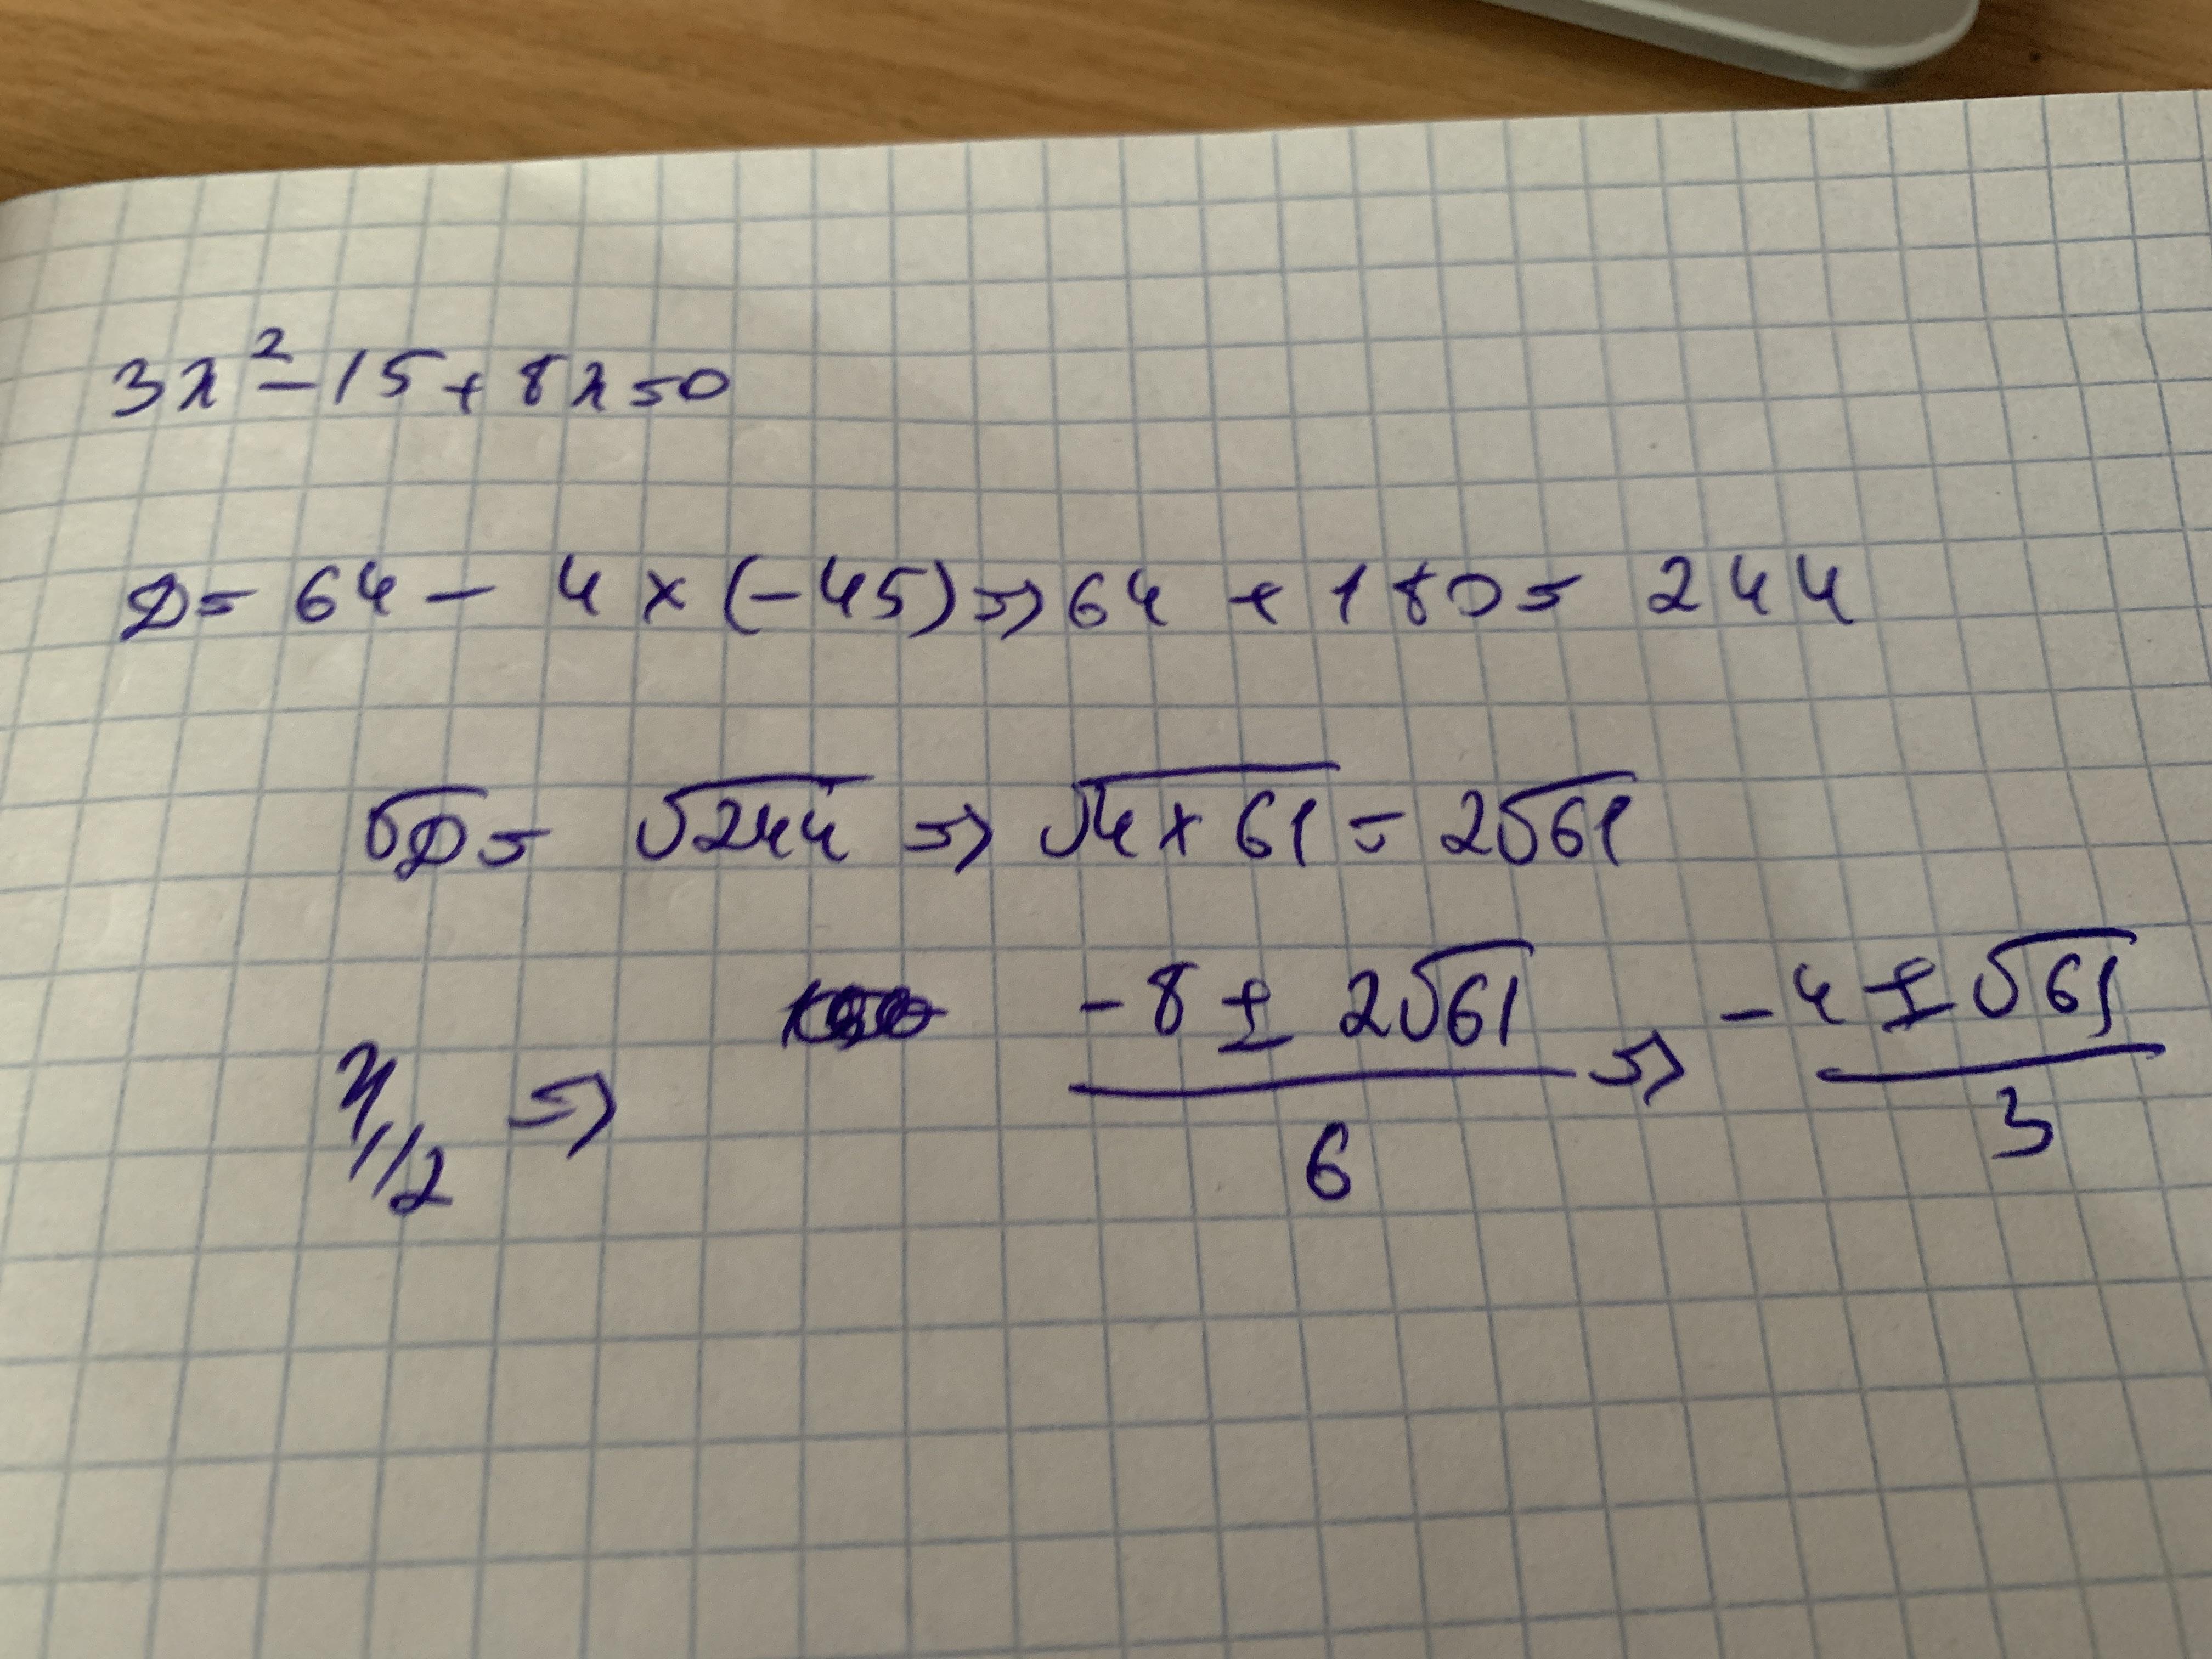 3x² - 15 + 8x = 0
D = 64 - 4 × (-45) => 64 + 180 = 244
√D = √244 => √4 × 61 = 2√61
x 1/2 => -8 ± 2√61 / 6 => -4 ± √61 / 3